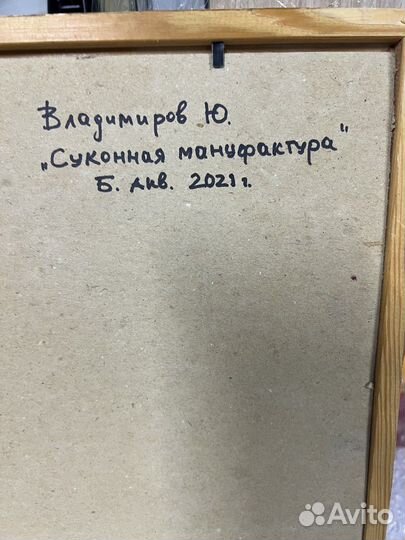 Владимиров Ю.
„Суконная мануфактура"
Б. акв. 2021 г.
Avito